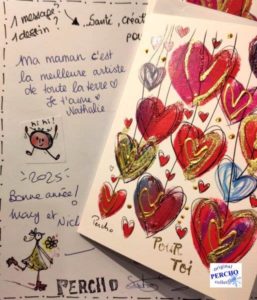 1 message?
1 dessin
...Santé, créat
pou
Ma maman c'est
la meilleure artiste
de toute la terre
Je t'aime
Nathalie
Hi Hi!
2025
Bonne année!
Many et
Nick
PERCHO
Percho
POUR
TOI
original
PERCHO